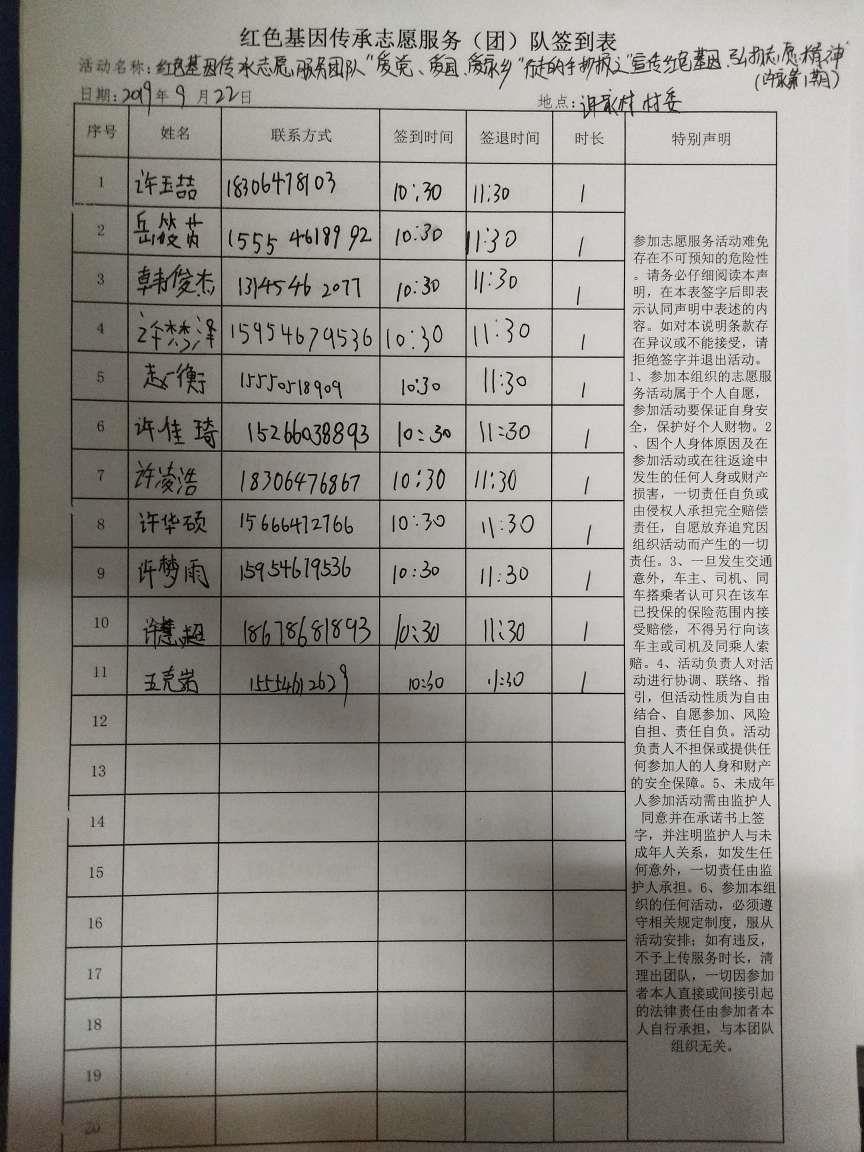 红色基因传承志愿服务（团）队签到表
活动名称：红色基因传承志愿服务团队“爱党、爱国、爱家乡”行走的手抄报之“宣传红色基因、弘扬志愿精神”
（许家第1期）
日期：2019年9月22日 地点：许家村村委
序号 姓名 联系方式 签到时间 签退时间 时长 特别声明
1 许玉喆 18306478103 10:30 11:30 1
2 岳筱芮 15554618992 10:30 11:30 1
3 韩俊杰 13145462077 10:30 11:30 1
4 许梦泽 15954679536 10:30 11:30 1
5 衡 15550518909 10:30 11:30 1
6 许佳琦 15266038893 10:30 11:30 1
7 许凌浩 18306476867 10:30 11:30 1
8 许华硕 15666472766 10:30 11:30 1
9 许梦雨 15954679536 10:30 11:30 1
10 许慧超 18678681893 10:30 11:30 1
11 王克岩 15554612629 10:30 11:30 1
12
13
14
15
16
17
18
19
20
参加志愿服务活动难免
存在不可预知的危险性
。请务必仔细阅读本声
明，在本表签字后即表
示认同声明中表述的内
容。如对本说明条款存
在异议或不能接受，请
拒绝签字并退出活动。
1、参加本组织的志愿服
务活动属于个人自愿，
参加活动要保证自身安
全，保护好个人财物。2
、因个人身体原因及在
参加活动或在往返途中
发生的任何人身或财产
损害，一切责任自负或
由侵权人承担完全赔偿
责任，自愿放弃追究因
组织活动而产生的一切
责任。3、一旦发生交通
意外，车主、司机、同
车搭乘者认可只在该车
已投保的保险范围内接
受赔偿，不得另行向该
车主或司机及同乘人索
赔。4、活动负责人对活
动进行协调、联络、指
引，但活动性质为自由
结合、自愿参加、风险
自担、责任自负。活动
负责人不担保或提供任
何参加人的人身和财产
的安全保障。5、未成年
人参加活动需由监护人
同意并在承诺书上签
字，并注明监护人与未
成年人关系，如发生任
何意外，一切责任由监
护人承担。6、参加本组
织的任何活动，必须遵
守相关规定制度，服从
活动安排；如有违反，
不予上传服务时长，清
理出团队，一切因参加
者本人直接或间接引起
的法律责任由参加者本
人自行承担，与本团队
组织无关。